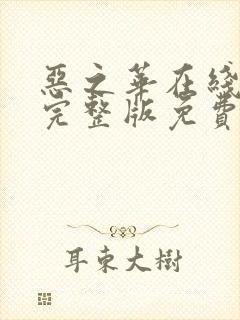 惡之華在綫
完整版免費
耳東大樹